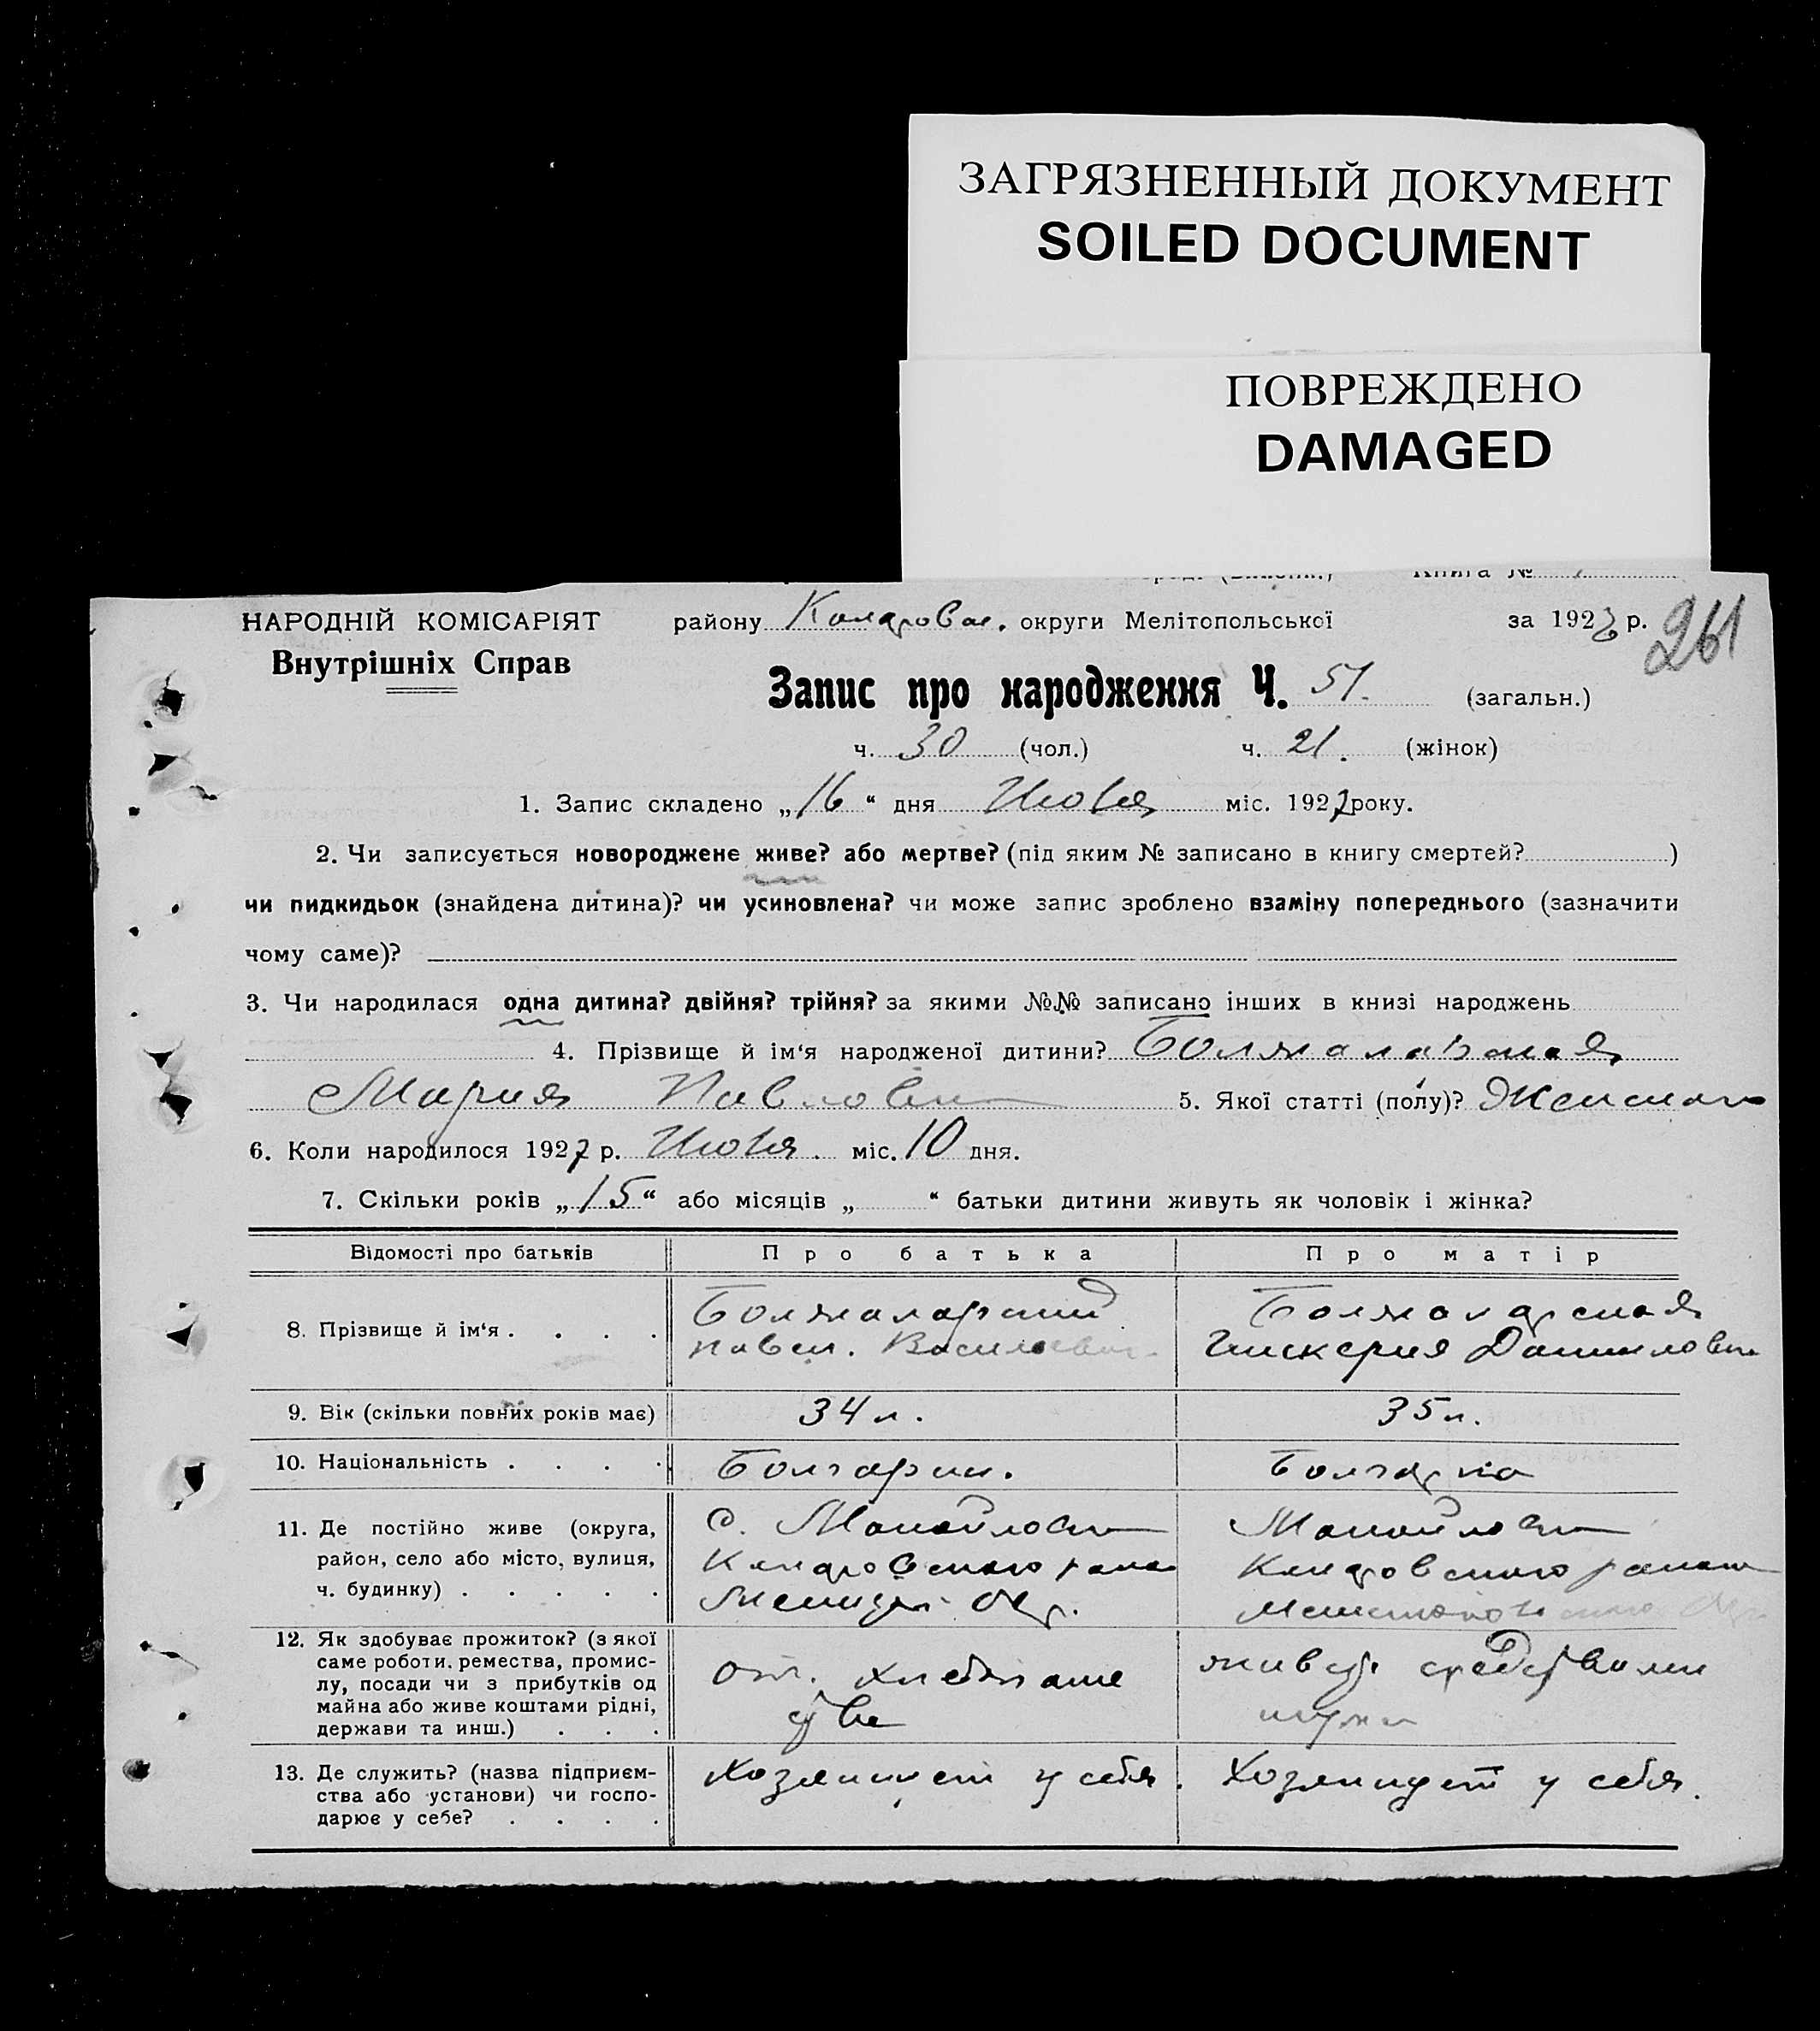 ЗАГРЯЗНЕННЫЙ ДОКУМЕНТ
SOILED DOCUMENT
ПОВРЕЖДЕНО
DAMAGED
Книга №
НАРОДНІЙ КОМІСАРІЯТ
Внутрішніх Справ
району округи Мелітопольської за 192 р.
261
Запис про народження Ч. 51. (загальн.)
ч. 30 (чол.) ч. 21. (жінок)
1. Запис складено „16“ дня Июля міс. 1927 року.
2. Чи записується новороджене живе? або мертве? (під яким № записано в книгу смертей? )
чи пидкидьок (знайдена дитина)? чи усиновлена? чи може запис зроблено взаміну попереднього (зазначити
чому саме)?
3. Чи народилася одна дитина? двійня? трійня? за якими №№ записано інших в книзі народжень
4. Прізвище й ім‘я народженої дитини? Болжаларская
Мария Павловна 5. Якої статті (полу)? Женского
6. Коли народилося 1927 р. Июля. міс. 10 дня.
7. Скільки років „15“ або місяців „ “ батьки дитини живуть як чоловік і жінка?
Відомості про батьків Про батька Про матір
8. Прізвище й ім‘я . . . . Болжаларский Болжаларская
Павел. Васильевич Гликерия Даниловна
9. Вік (скільки повних років має) 34 л. 35 л.
10. Національність . . . . Болгарин. Болгарка
11. Де постійно живе (округа, с. Манойловка Манойловка
район, село або місто, вулиця, Коларовского района Коларовского района
ч. будинку) . . . . . Мелитоп. Окр. Мелитопольского Окр.
12. Як здобуває прожиток? (з якої
саме роботи, ремества, промис-
лу, посади чи з прибутків од
майна або живе коштами рідні,
держави та инш.) . . .
от. хлебопаше
ства
живет средствами
мужа
13. Де служить? (назва підприєм- Хозяинует у себя. Хозяинует у себя.
ства або установи) чи госпо-
дарює у себе? . . . .